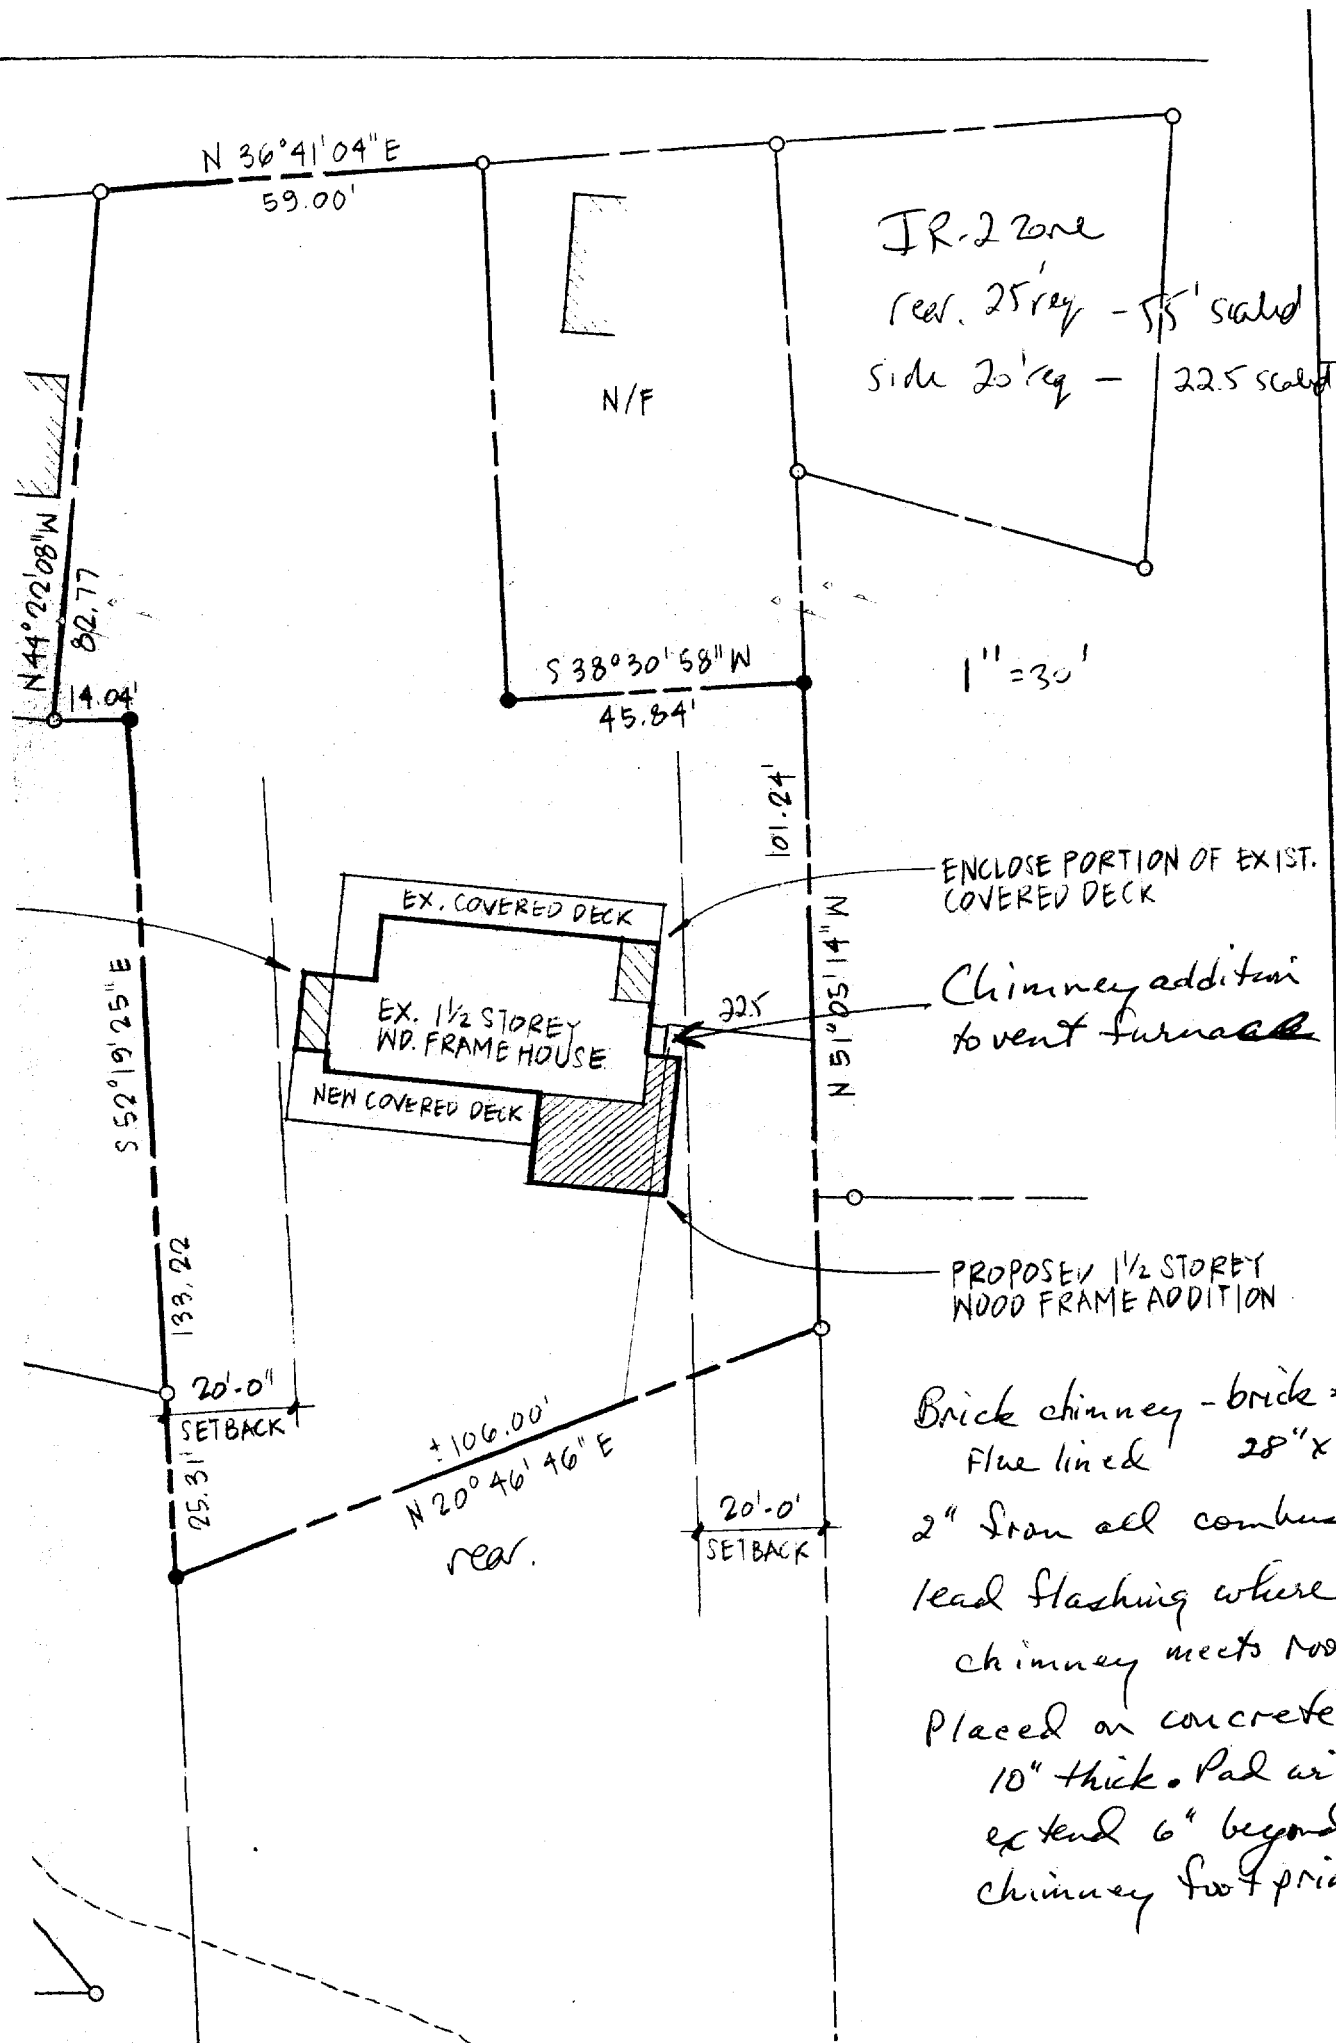 N 36°41'04"E
59.00'
IR-2 zone
rear. 25' req - 55' scaled
side 20' req - 22.5 scaled
N/F
N44°22'08"W
82.77
14.04'
S 38°30'58"W
45.84'
1"=30'
101.24'
N 51°05'14"W
ENCLOSE PORTION OF EXIST.
COVERED DECK
EX. COVERED DECK
Chimney addition
to vent furnace
22.5
EX. 1½ STOREY
WD. FRAME HOUSE
NEW COVERED DECK
S 52°19'25"E
133.22
PROPOSED 1½ STOREY
WOOD FRAME ADDITION
20'-0"
SETBACK
25.31'
±106.00'
N 20°46'46"E
rear.
20'-0'
SETBACK
Brick chimney - brick
Flue lined 28"x
2" from all combus
lead flashing where
chimney meets roo
Placed on concrete
10" thick. Pad wi
extend 6" beyond
chimney footprin